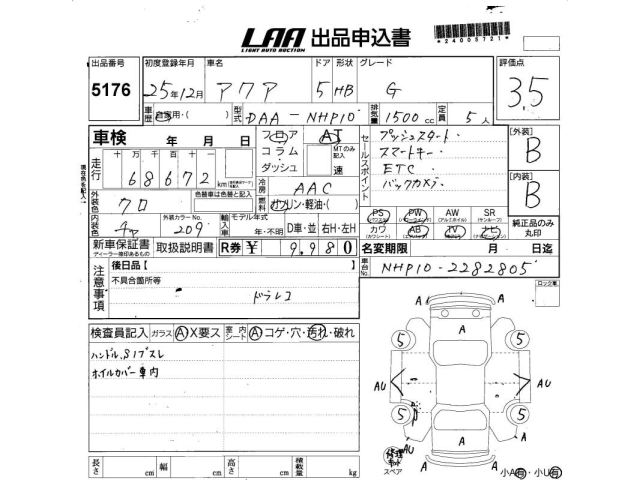 LAA 出品申込書
LIGHT AUTO AUCTION
*24005721*
出品番号 初度登録年月 車名 ドア 形状 グレード 評価点
5176 25年12月 アクア 5 HB G 3.5
車歴 自家用・( ) 型式 DAA-NHP10 排気量 1500cc 定員 5人
車検 年 月 日 フロア AT
コラム MTのみ記入
ダッシュ 速
走行 十万 万 千 百 十
68672 km
冷房 AAC
燃料 ガソリン・軽油・( )
外装色 クロ 色替車は色替と記入
内装色 チャ 外装カラーNo. 209 輸入車 モデル年式 年・不明 D車・並 右H・左H
セールスポイント
プッシュスタート・
スマートキー・
ETC・
バックカメラ・
[外装] B
[内装] B
PS PW AW SR
カワ AB TV ナビ
純正品のみ丸印
新車保証書 取扱説明書 R券 ¥ 9,980
ディーラー捺印あるもの
名変期限 月 日迄
車台No. NHP10-2282805
ロック車
注意事項 後日品【 】
不具合箇所等
ドラレコ
検査員記入 ガラス A X要ス 室内シート A コゲ・穴・汚れ・破れ
ハンドル、S1プスレ
ホイルカバー車内
A
A
5 5
AU AU
5 5
AU A
A A
A
修理キット
スペア
小A有・小U有
長さ cm 幅 cm 高さ cm 積載量 kg